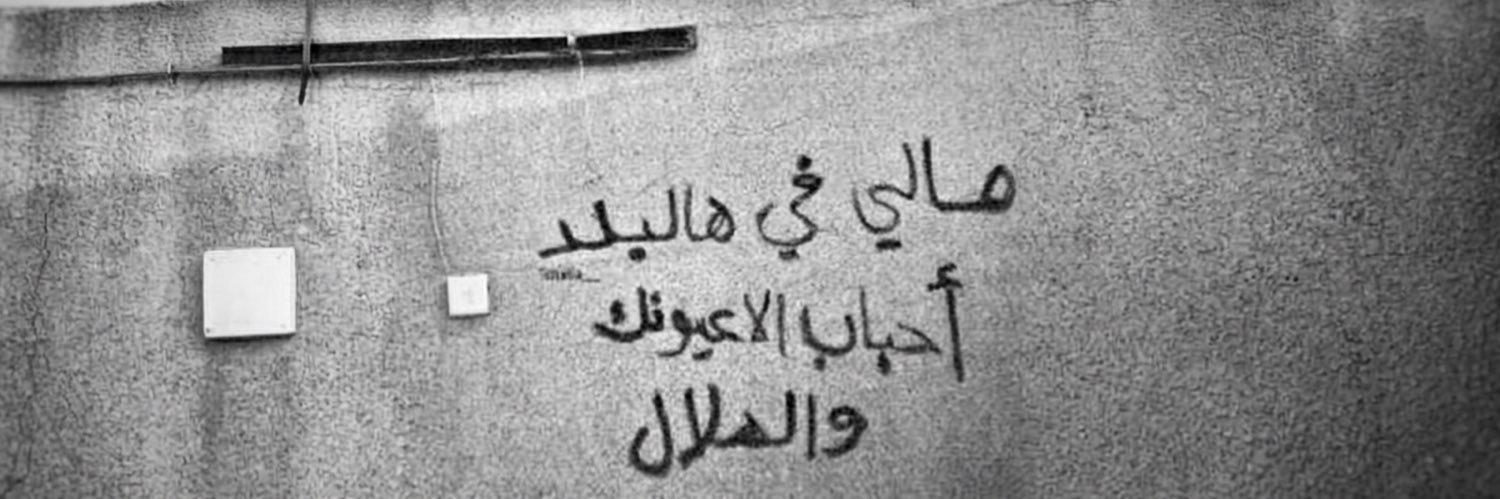 مالي في هالبلد
أحباب الاعيونك
والهلال